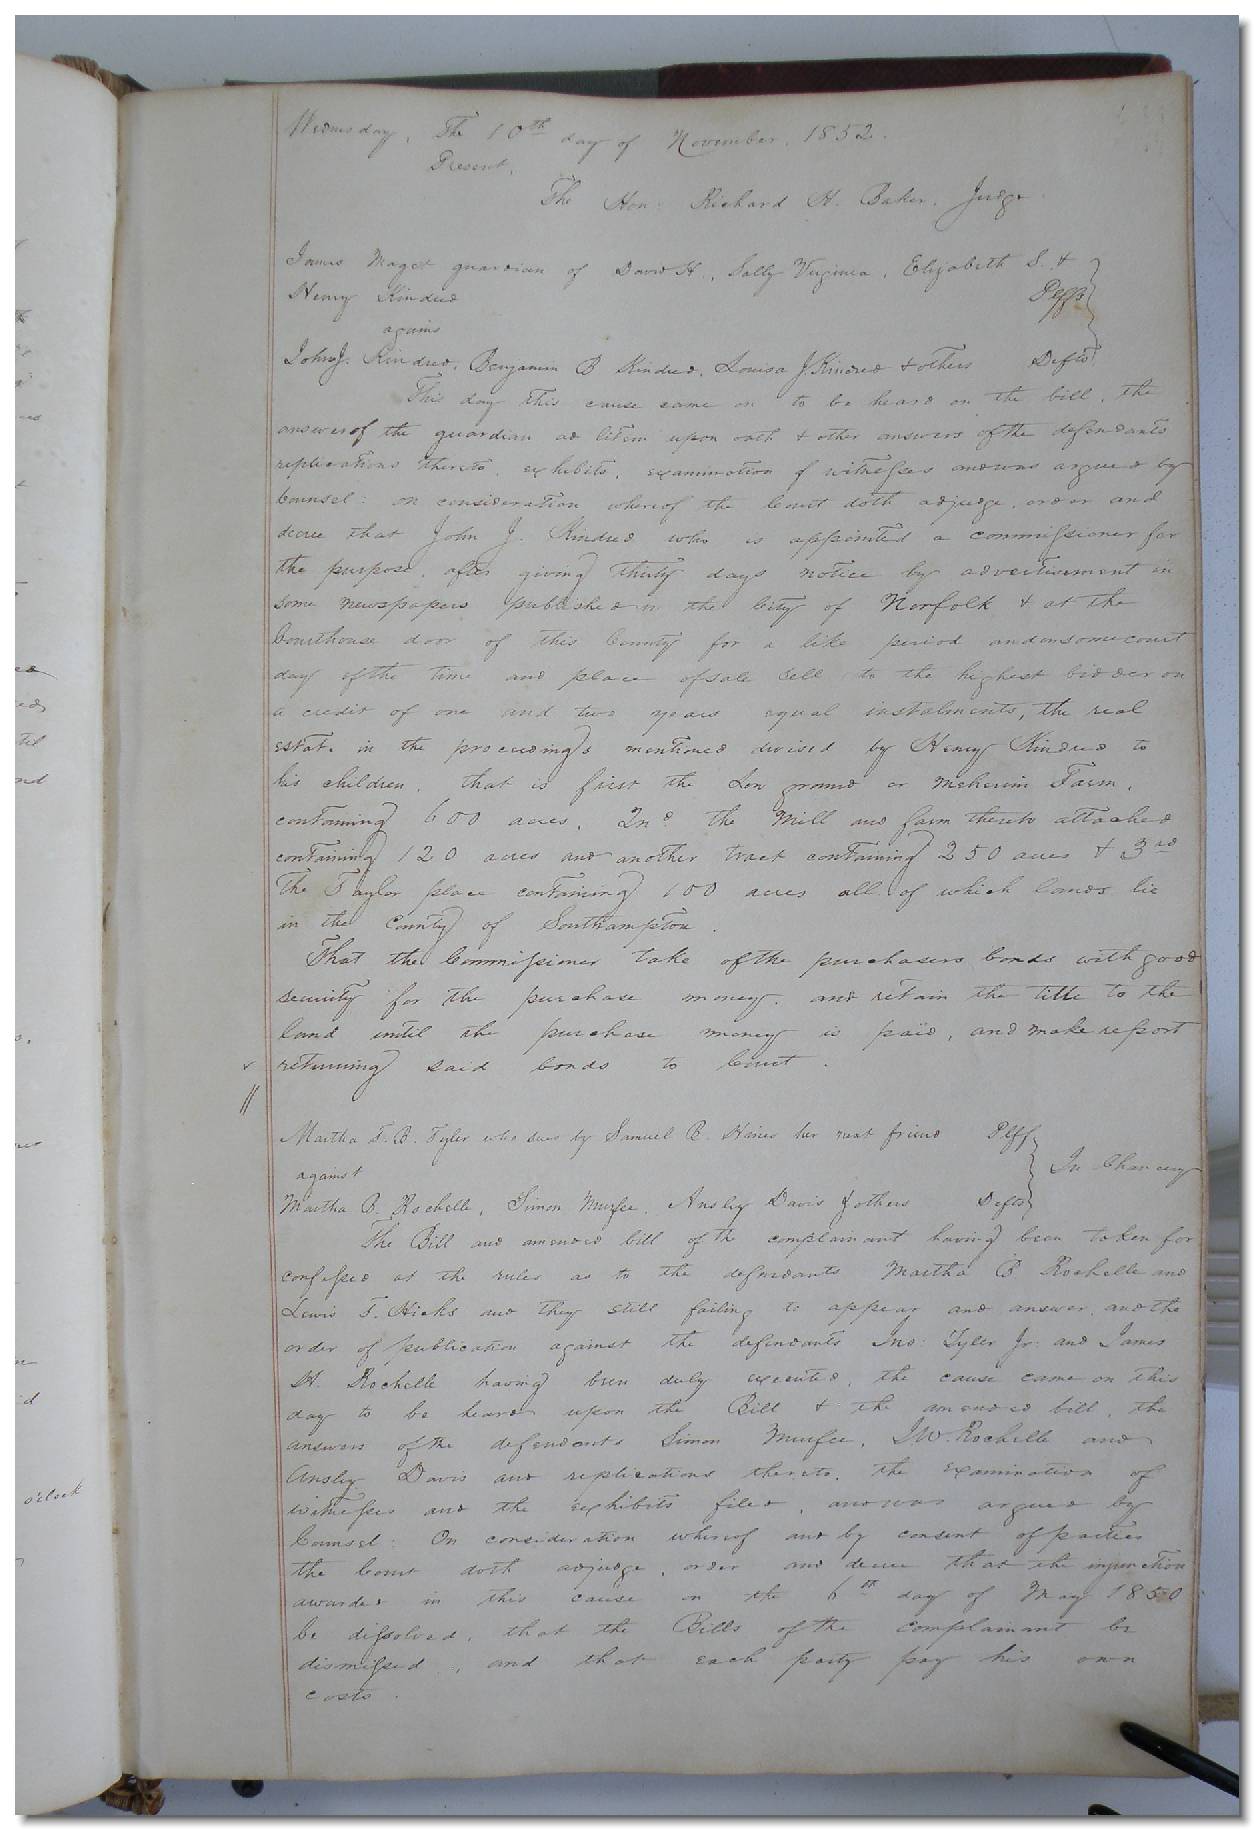 Wednesday, The 10th day of November, 1852.
Present,
The Hon: Richard H. Baker, Judge
James Maget guardian of David H., Sally Virginia, Elizabeth S. &
Henry Kindred Plffs
agains
John J. Kindred, Benjamin B Kindred, Louisa J. Kindred & others Defts
This day this cause came on to be heard on the bill, the
answer of the guardian ad litem upon oath & other answers of the defendants
replications thereto, exhibits, examination of witnesses and was argued by
Counsel: on consideration whereof the Court doth adjudge, order and
decree that John J. Kindred who is appointed a commissioner for
the purpose, after giving thirty days notice by advertisement in
some newspapers published in the City of Norfolk & at the
Courthouse door of this County for a like period and on some court
day of the time and place of sale sell to the highest bidder on
a credit of one and two years equal instalments, the real
estate in the proceedings mentioned devised by Henry Kindred to
his children, that is first the ground or Meherrin Farm,
containing 600 acres, 2nd the Mill and farm thereto attached
containing 120 acres and another tract containing 250 acres & 3rd
The Taylor place containing 100 acres all of which lands lie
in the County of Southampton.
That the Commissioner take of the purchasers bonds with good
security for the purchase money, and retain the title to the
land until the purchase money is paid, and make report
returning said bonds to Court.
Martha T. B. Tyler who sues by Samuel B. Hines her next friend Plff
against In Chancery
Martha B. Rochelle, Simon Murfee, Ansley Davis & others Defts
The Bill and amended bill of the complainant having been taken for
confessed at the rules as to the defendants Martha B Rochelle and
Lewis T. Hicks and they still failing to appear and answer, and the
order of publication against the defendants Jno: Tyler Jr. and James
H. Rochelle having been duly executed, the cause came on this
day to be heard upon the Bill & the amended bill, the
answers of the defendants Simon Murfee, J. W. Rochelle and
Ansley Davis and replications thereto, the examination of
witnesses and the exhibits filed, and was argued by
Counsel: On consideration whereof and by consent of parties
the Court doth adjudge, order and decree that the injunction
awarded in this cause on the 6th day of May 1850
be dissolved, that the Bills of the complainant be
dismissed, and that each party pay his own
costs.
o'clock